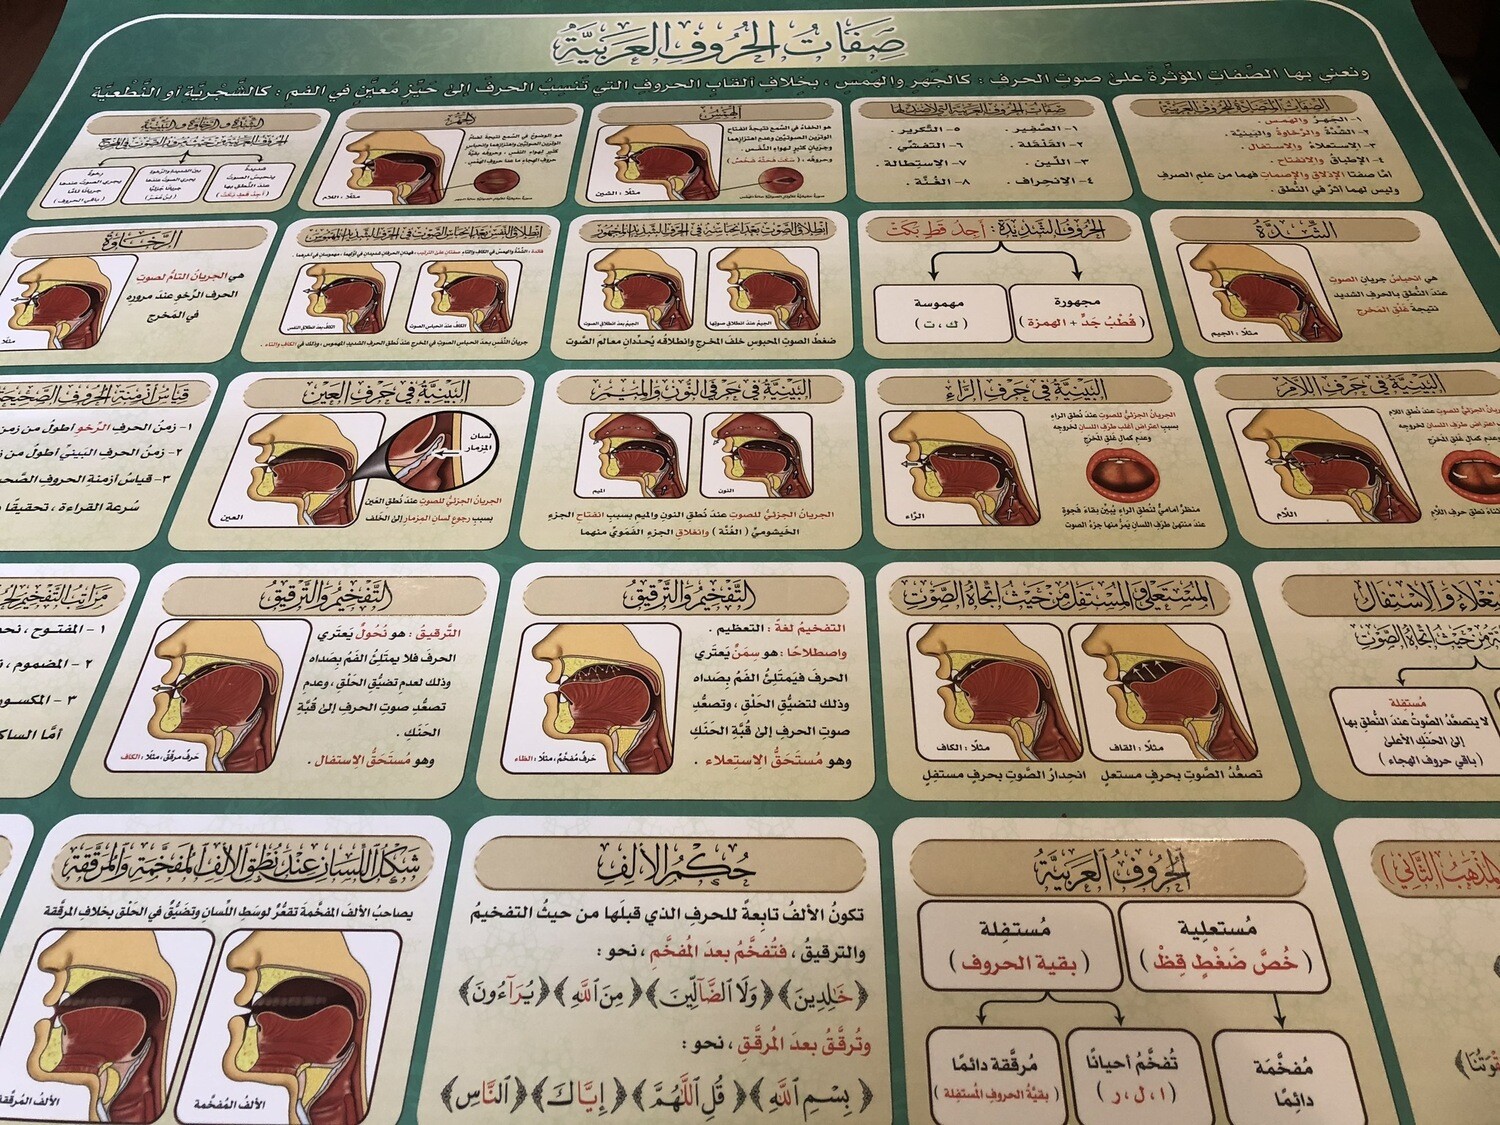 صِفَاتُ الحُرُوفِ العَرَبِيَّةِ
ونعني بها الصِّفات المؤثِّرة على صوت الحرف : كالجَهر والهَمس ، بخلاف ألقاب الحروف التي تَنسِبُ الحرفَ إلى حَيِّزٍ مُعيَّنٍ في الفم : كالشَّجْريَّة أو النِّطْعيَّة
الصفات المتضادة للحروف العربية
١- الجَهرُ والهمس .
٢- الشِّدَّةُ والرَّخاوةُ والبينيَّة .
٣- الاستعلاءُ والاستفال .
٤- الإطباقُ والانفتاح .
أمَّا صفتا الإذلاق والإصمات فهما من علم الصرف
وليس لهما أثرٌ في النُّطق .
صفات الحروف العربية التي لا ضد لها
١- الصَّفِير .
٢- القَلقَلة .
٣- اللِّين .
٤- الانحِراف .
٥- التَّكرير .
٦- التفشِّي .
٧- الاستِطالة .
٨- الغُنَّة .
الهَمْسُ
هو الخفاءُ في السَّمع نتيجة انفتاح
الوترين الصوتيين وعدم اهتزازهما
وجريانٍ كثيرٍ لهواء النَّفَس .
وحروفه : ( سَكَتَ فَحَثَّهُ شَخصٌ )
مثلًا : الشين
الجَهْرُ
هو الوضوحُ في السَّمع نتيجة لتضام
الوترين الصوتيين واهتزازهما وانحباس
كثيرٍ لهواء النَّفَس ، وحروفه بقيَّة
حروف الهجاء ما عدا حروف الهَمْس .
مثلًا : اللام
الشدة والرخاوة والبينية
شديدة
ينحبس الصوت
عند النُّطق بها
( أجِدُ قَطٍ بَكَتْ )
بين الشديدة والرِّخوة
يجري الصوت عندها
جريانًا جُزئيًّا
( لِنْ عُمَرُ )
رِخوة
يجري الصوت عندها
جريانًا تامًّا
( باقي الحروف )
الشِّدَّةُ
هي انحباسُ جريان الصوتِ
عندَ النُّطق بالحرف الشديد
نتيجةَ غلق المخرج
مثلًا : الجيم
الحُرُوفُ الشَّدِيدَةُ : أَجِدُ قَطٍ بَكَتْ
مجهورة
( قُطْبُ جَدٍّ + الهمزة )
مهموسة
( ك ، ت )
انطلاق الصوت بعد انحباسه في الحرف الشديد المجهور
الجيمُ عند انطلاق صوتها
الجيمُ بعد انطلاق الصوت
ضغطُ الصوتِ المحبوسِ خلفَ المخرجِ وانطلاقُه يُحدِّدانِ معالمَ الصَّوت
انطلاق النفس بعد انحباس الصوت في الحرف الشديد المهموس
الكاف عند انحباس الصوت
الكاف بعد انطلاق النفس
جريانُ النَّفَسِ بعدَ انحباسِ الصوتِ في المخرجِ عندَ نُطق الحرف الشديد المهموس ، وذلك في الكاف والتاء .
الرَّخَاوَةُ
هي الجريانُ التامُّ لصوتِ
الحرف الرِّخوِ عند مروره
في المَخرج
البَيْنِيَّةُ فِي حَرْفِ اللَّامِ
الجريانُ الجزئيُّ للصوتِ عندَ نُطق اللام
اللَّام
البَيْنِيَّةُ فِي حَرْفِ الرَّاءِ
الجريانُ الجزئيُّ للصوتِ عندَ نُطق الراء
بسببِ اعتراضِ أغلبِ طرَفِ اللسان لخروجه
وعدمِ كمالِ غلقِ المَخرج
الرَّاء
منظرٌ أماميٌّ لنُطق الراء يُبيِّنُ بقاءَ فَجوةٍ
عندَ منتهى طرَفِ اللسان يَمرُّ منها جزءُ الصوت
البَيْنِيَّةُ فِي حَرْفَيِ النُّونِ وَالمِيْمِ
النون
الميم
الجريانُ الجزئيُّ للصوتِ عندَ نُطقِ النونِ والميمِ بسببِ انفتاحِ الجزءِ
الخَيشوميِّ ( الغُنَّة ) وانغلاقِ الجزءِ الفَمَويِّ منهما
البَيْنِيَّةُ فِي حَرْفِ العَيْنِ
لسان
المِزمار
العين
الجريانُ الجزئيُّ للصوتِ عندَ نُطقِ العَين
بسببِ رجوعِ لسانِ المِزمارِ إلى الخَلف
قِيَاسُ أَزْمِنَةِ الحُرُوفِ الصَّحِيحَة
١- زمنُ الحرفِ الرِّخوِ أطولُ من زمن
٢- زمنُ الحرفِ البَينيِّ أطولُ من ز
٣- قياسُ أزمنةِ الحروفِ الصَّح
سُرعة القراءة ، تحقيقًا
والاستفال
من حيث اتجاه الصوت
مُستفِلة
لا يتصعَّدُ الصَّوتُ عندَ النُّطقِ بها
إلى الحَنَكِ الأعلى
( باقي حروف الهجاء )
المُسْتَعْلِي وَالمُسْتَفِلُ مِنْ حَيْثُ اتِّجَاهُ الصَّوْتِ
مثلًا : القاف
مثلًا : الكاف
تصعُّدُ الصَّوتِ بحرفٍ مستعلٍ
انحِدارُ الصَّوتِ بحرفٍ مستفِلٍ
التَّفْخِيمُ وَالتَّرْقِيقُ
التفخيمُ لغةً : التعظيم .
واصطلاحًا : هو سِمَنٌ يَعتري
الحرفَ فيَمتَلئُ الفَمُ بصَداه
وذلك لتضيُّقِ الحَلْقِ ، وتصعُّدِ
صوتِ الحرفِ إلى قُبَّةِ الحَنَكِ
وهو مُستَحَقُّ الاستِعلاء .
حرفٌ مُفخَّمٌ ، مثلًا : الظاء
التَّفْخِيمُ وَالتَّرْقِيقُ
التَّرقيقُ : هو نُحولٌ يَعتَري
الحرفَ فلا يمتلئُ الفَمُ بصَداه
وذلك لعدمِ تضيُّقِ الحَلْقِ ، وعدمِ
تصعُّدِ صوتِ الحرفِ إلى قُبَّةِ
الحَنَكِ .
وهو مُستَحَقُّ الاستِفال .
حَرفٌ مرقَّقٌ ، مثلًا : الكاف
مَرَاتِبُ التَّفْخِيمِ
١ - المفتوح ، نحو
٢ - المضموم ،
٣ - المكسور
أمَّا الساك
المَذْهَبُ الثَّانِي )
الحُرُوفُ العَرَبِيَّةُ
مُستعلِية
( خُصَّ ضَغْطٍ قِظْ )
مُستفِلة
( بقية الحروف )
مُفخَّمَة
دائمًا
تُفخَّم أحيانًا
( ا ، ل ، ر )
مُرقَّقة دائمًا
( بقيَّةُ الحروفِ المُستفِلة )
حُكْمُ الأَلِفِ
تكونُ الألفُ تابِعةً للحرفِ الذي قبلَها من حيثُ التفخيمُ
والترقيقُ ، فتُفخَّمُ بعدَ المُفخَّمِ ، نحو :
﴿خَٰلِدِينَ﴾ ﴿وَلَا ٱلضَّآلِّينَ﴾ ﴿مِنَ ٱللَّهِ﴾ ﴿يُرَآءُونَ﴾
وتُرقَّقُ بعدَ المُرقَّقِ ، نحو :
﴿بِسْمِ ٱللَّهِ﴾ ﴿قُلِ ٱللَّهُمَّ﴾ ﴿إِيَّاكَ﴾ ﴿ٱلنَّاسِ﴾
شَكْلُ اللِّسَانِ عِنْدَ نُطْقِ الأَلِفِ المُفَخَّمَةِ وَالمُرَقَّقَةِ
يصاحبُ الألفَ المفخَّمةَ تقعُّرٌ لوسَطِ اللِّسانِ وتضيُّقٌ في الحَلْقِ بخلافِ المرقَّقة
الألفُ المُفخَّمة
الألفُ المُرقَّقة